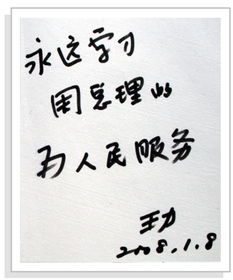 永远学习
周总理的
为人民服务
王力
2008.1.8